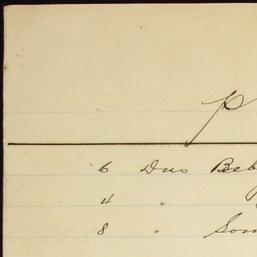 P
6 Duo Beb
4 "
8 " Son